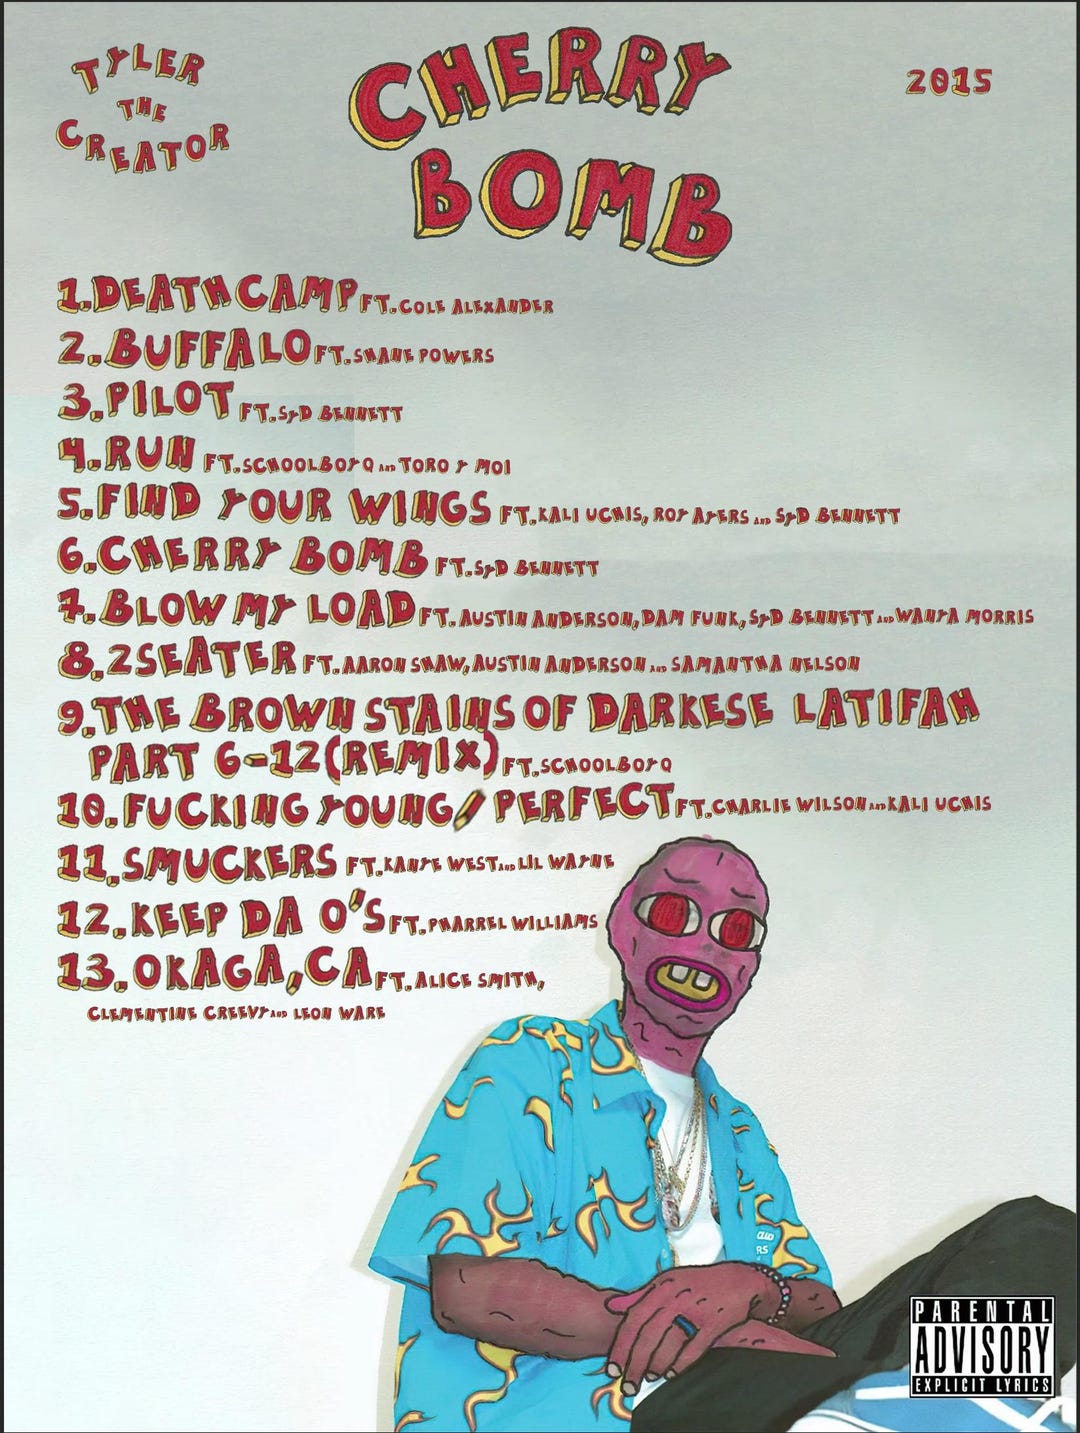 TYLER
THE
CREATOR
CHERRY
BOMB
2015
1.DEATHCAMP FT.COLE ALEXANDER
2.BUFFALO FT.SHANE POWERS
3.PILOT FT.SYD BENNETT
4.RUN FT.SCHOOLBOY Q AND TORO Y MOI
5.FIND YOUR WINGS FT.KALI UCHIS, ROY AYERS AND SYD BENNETT
6.CHERRY BOMB FT.SYD BENNETT
7.BLOW MY LOAD FT.AUSTIN ANDERSON,DAM FUNK,SYD BENNETT AND WANYA MORRIS
8.2SEATER FT.AARON SHAW,AUSTIN ANDERSON AND SAMANTHA NELSON
9.THE BROWN STAINS OF DARKESE LATIFAH
PART 6-12(REMIX) FT.SCHOOLBOY Q
10.FUCKING YOUNG/PERFECT FT.CHARLIE WILSON AND KALI UCHIS
11.SMUCKERS FT.KANYE WEST AND LIL WAYNE
12.KEEP DA O'S FT.PHARREL WILLIAMS
13.OKAGA,CA FT.ALICE SMITH,
CLEMENTINE CREEVY AND LEON WARE
PARENTAL
ADVISORY
EXPLICIT LYRICS